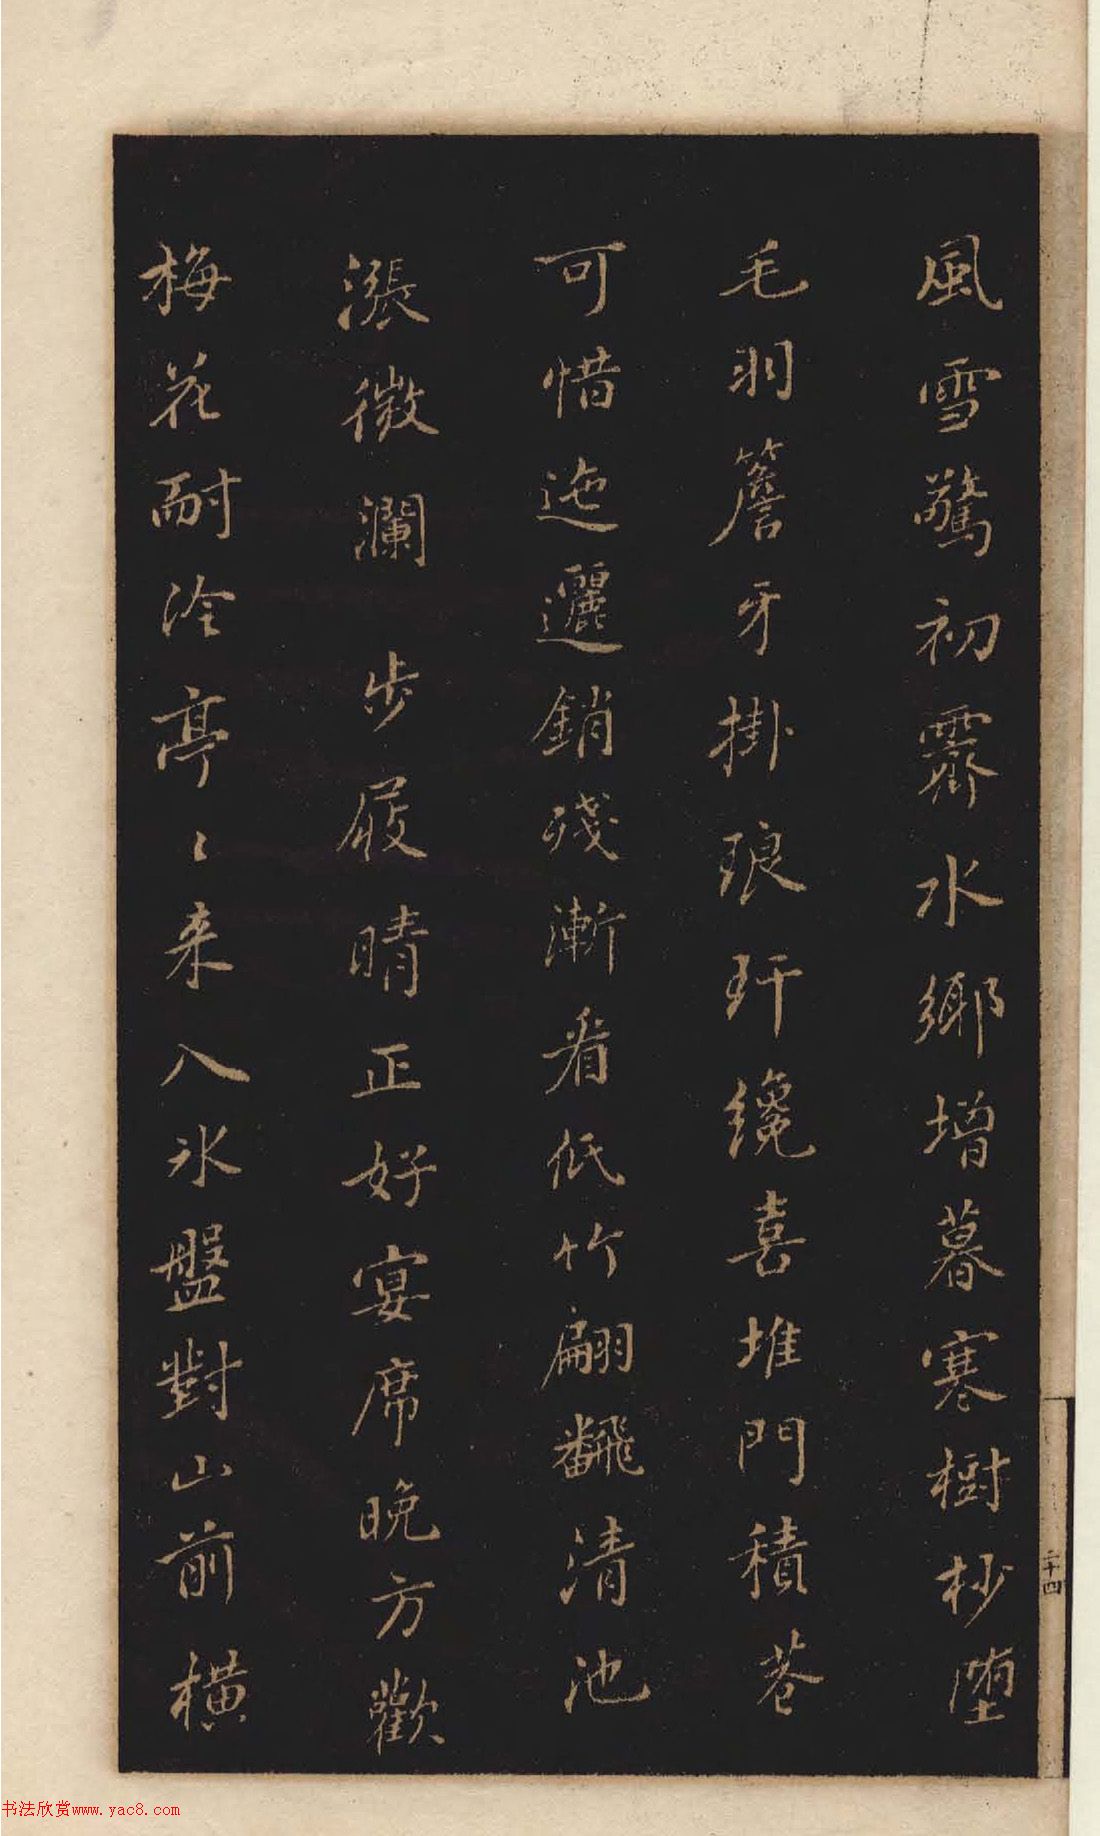 風雪驚初霽水鄉增暮寒樹杪墮
毛羽簷牙掛琅玕纔喜堆門積巷
可惜迤邐銷殘漸看低竹翩翻清池
漲微瀾步屐晴正好宴席晚方歡
梅花耐冷亭〻来入冰盤對山前橫
二十四
书法欣赏www.yac8.com